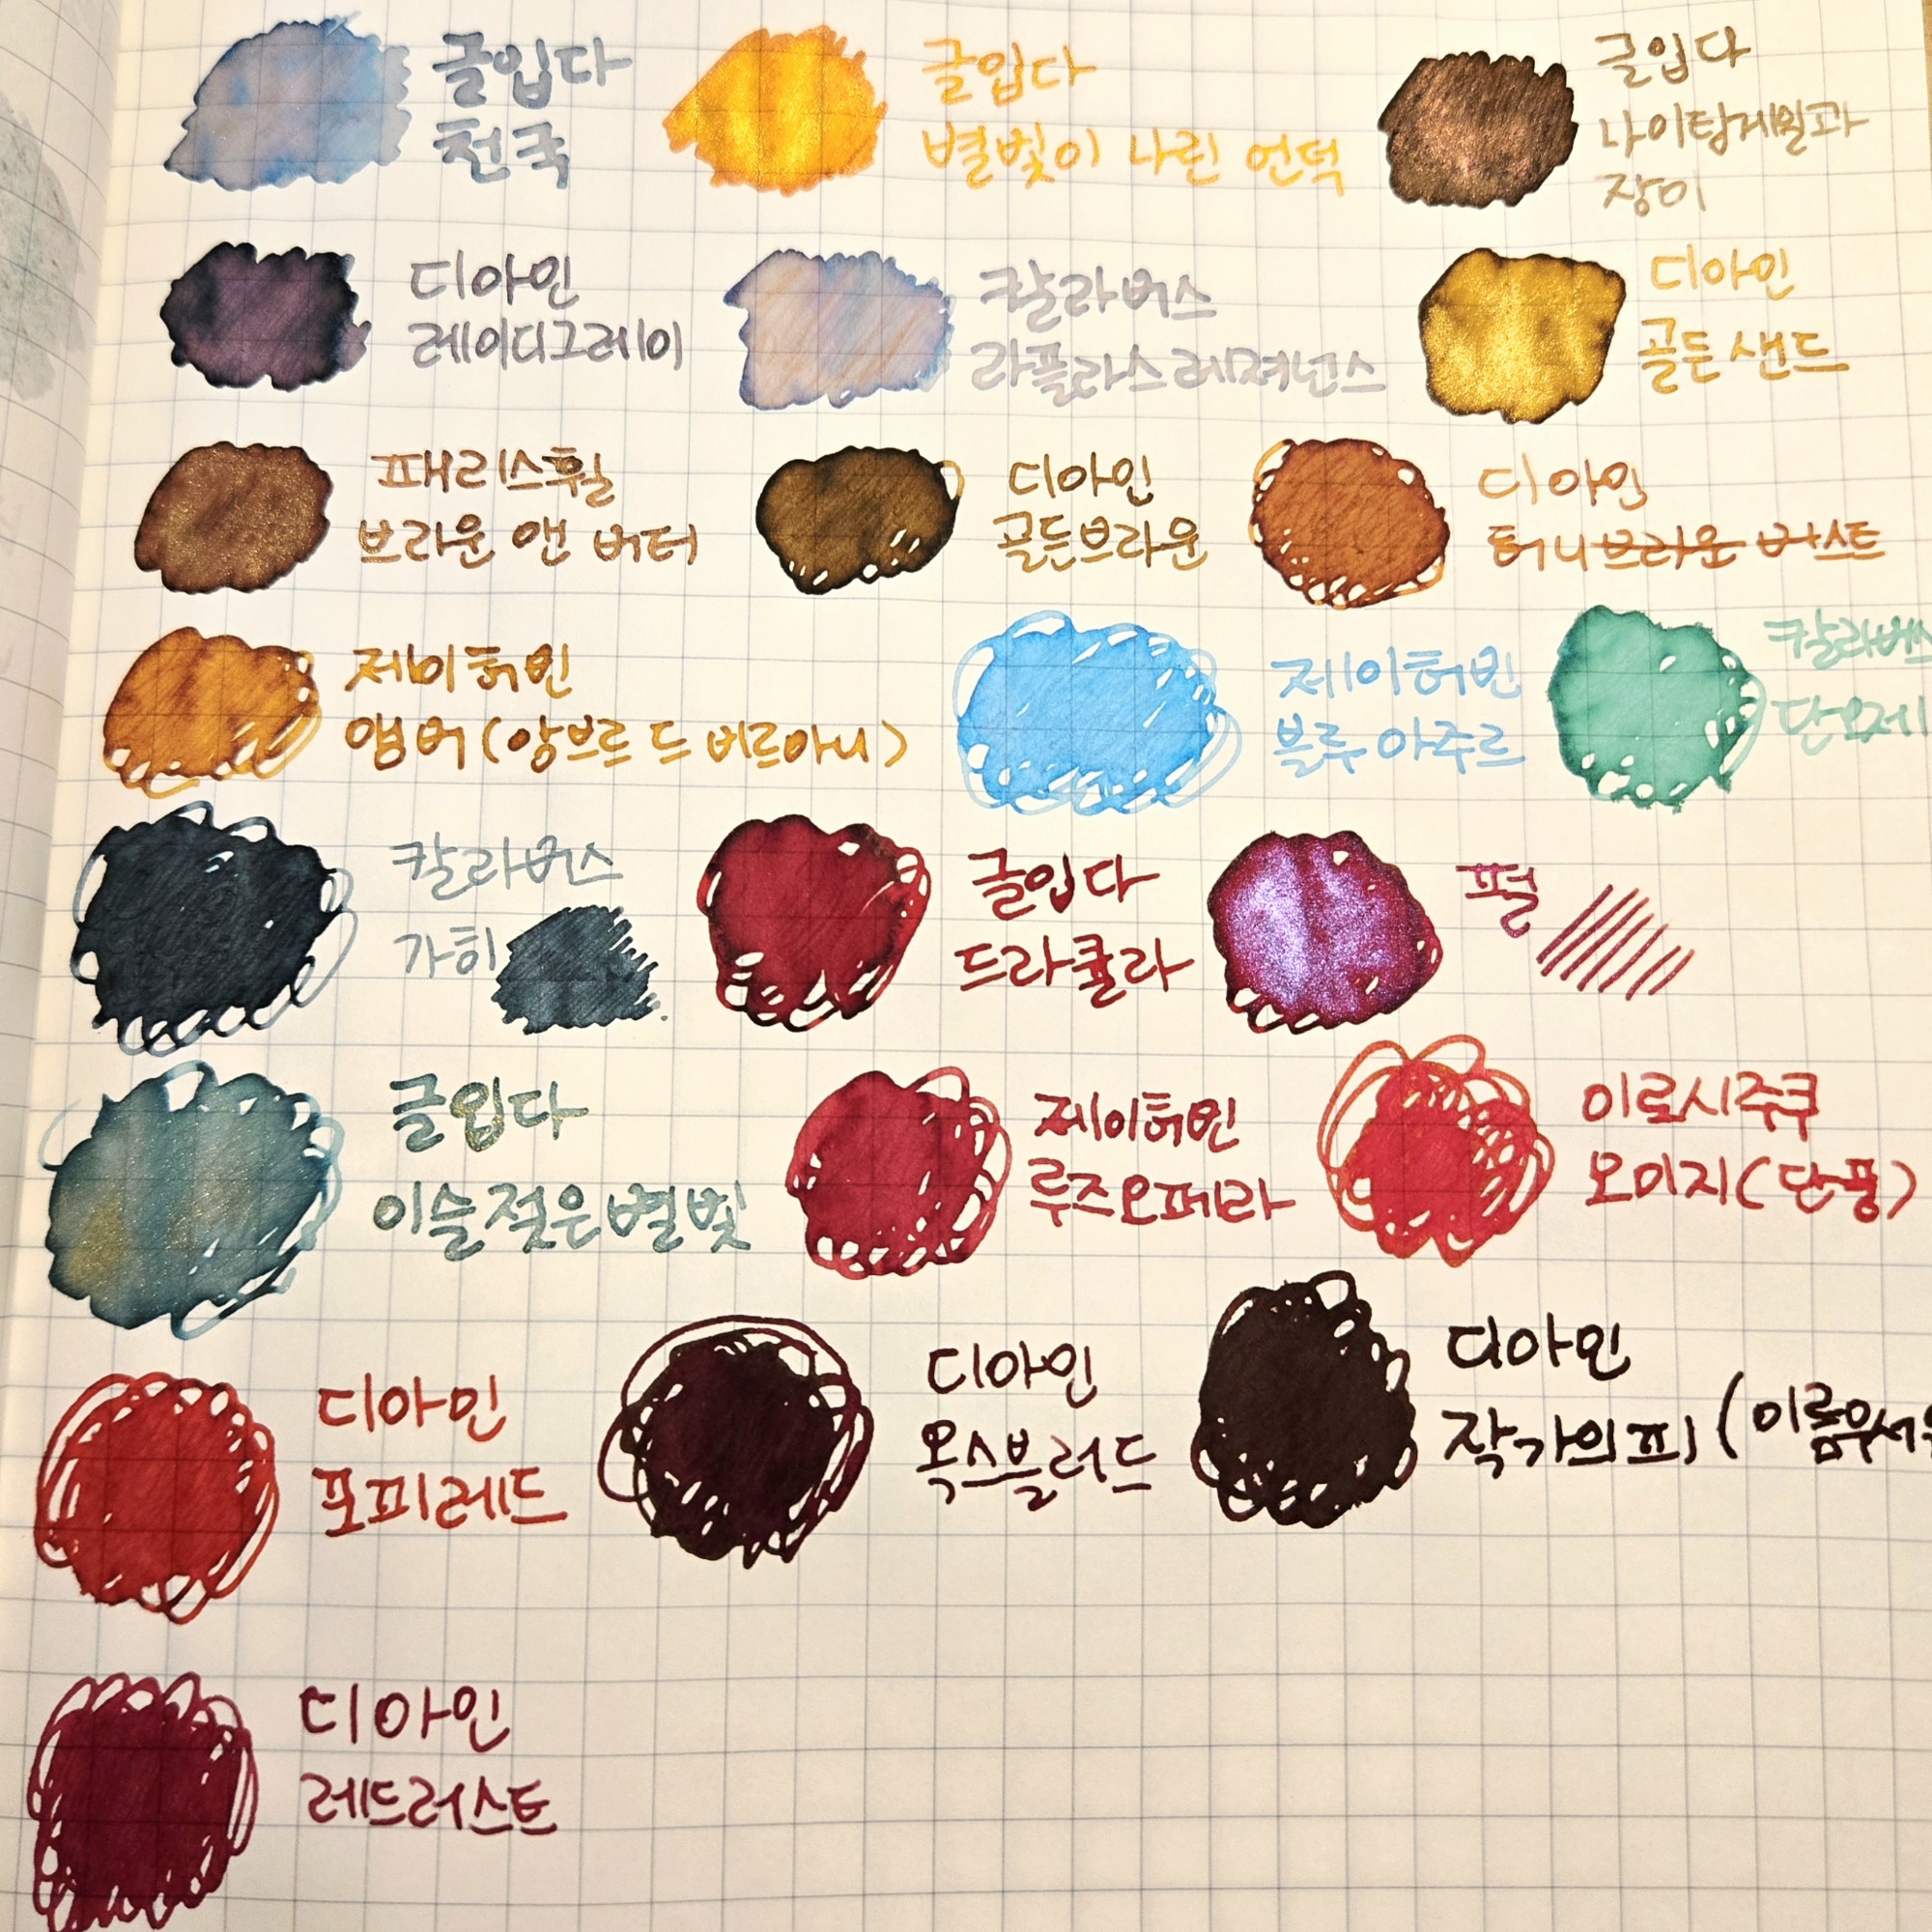 글입다
천국
글입다
별빛이 나린 언덕
글입다
나이팅게일과
장미
디아민
레이디그레이
칼라버스
라플라스레져넌스
디아민
골든샌드
패리스휠
브라운 앤 버터
디아민
골든브라운
디아민
허니브라운 버스트
제이허빈
앰버(앙브르 드 비르마니)
제이허빈
블루 아주르
칼라버스
단오제
칼라버스
가히
글입다
드라큘라
펄
글입다
이슬젖은별빛
제이허빈
루즈오페라
이로시주쿠
모미지(단풍)
디아민
포피레드
디아민
옥스블러드
디아민
작가의피(이름무서
디아민
레드러스트